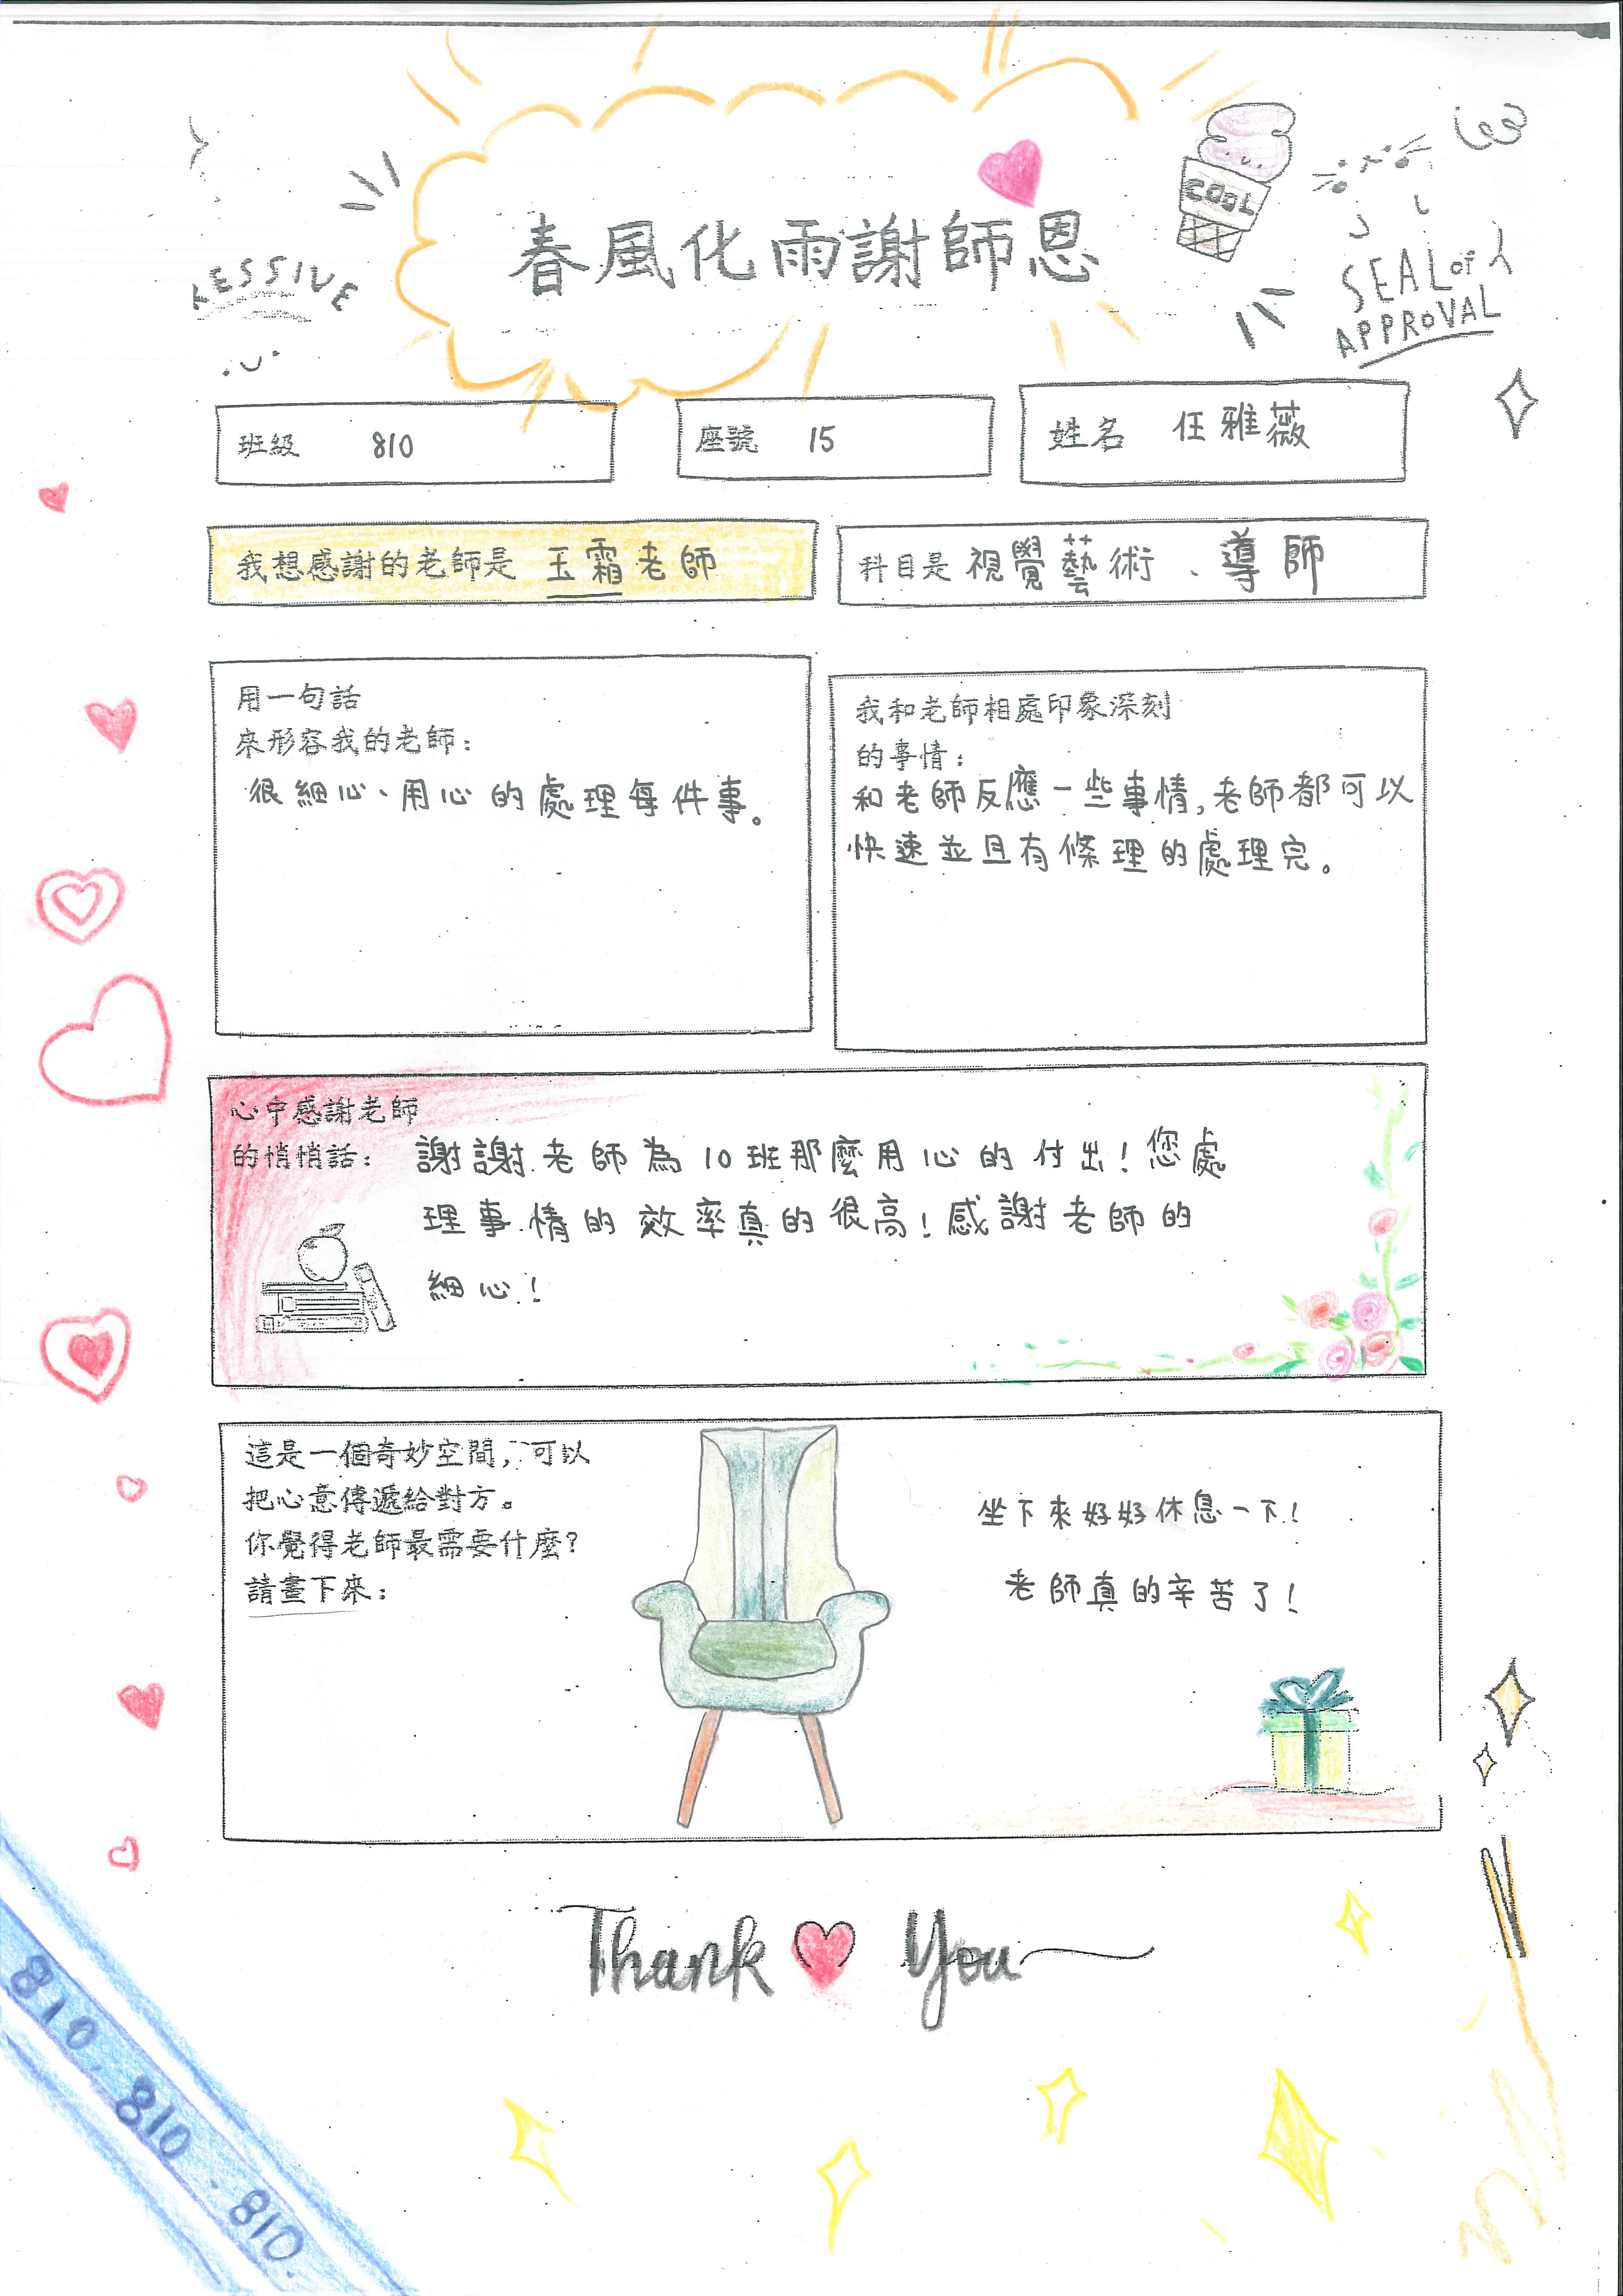 春風化雨謝師恩
COOL
RESSIVE
SEAL of
APPROVAL
班級 810
座號 15
姓名 任雅薇
我想感謝的老師是 玉霜老師
科目是 視覺藝術、導師
用一句話
來形容我的老師：
很細心、用心的處理每件事。
我和老師相處印象深刻
的事情：
和老師反應一些事情,老師都可以
快速並且有條理的處理完。
心中感謝老師
的悄悄話：
謝謝老師為10班那麼用心的付出！您處
理事情的效率真的很高！感謝老師的
細心！
這是一個奇妙空間，可以
把心意傳遞給對方。
你覺得老師最需要什麼?
請畫下來：
坐下來好好休息一下！
老師真的辛苦了！
Thank You
810.810.810.